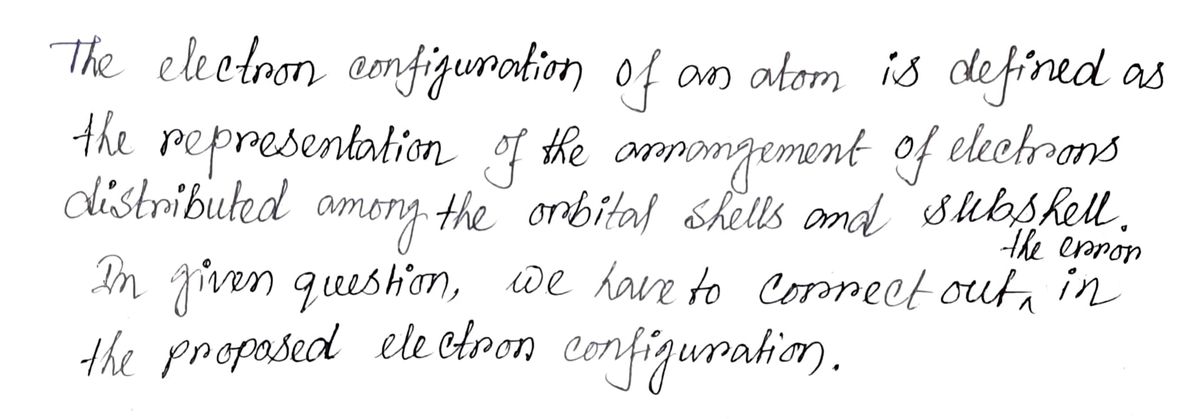 The electron configuration of an atom is defined as
the representation of the arrangement of electrons
distributed among the orbital shells and subshell.
the error
In given question, we have to correct out ^ in
the proposed electron configuration.